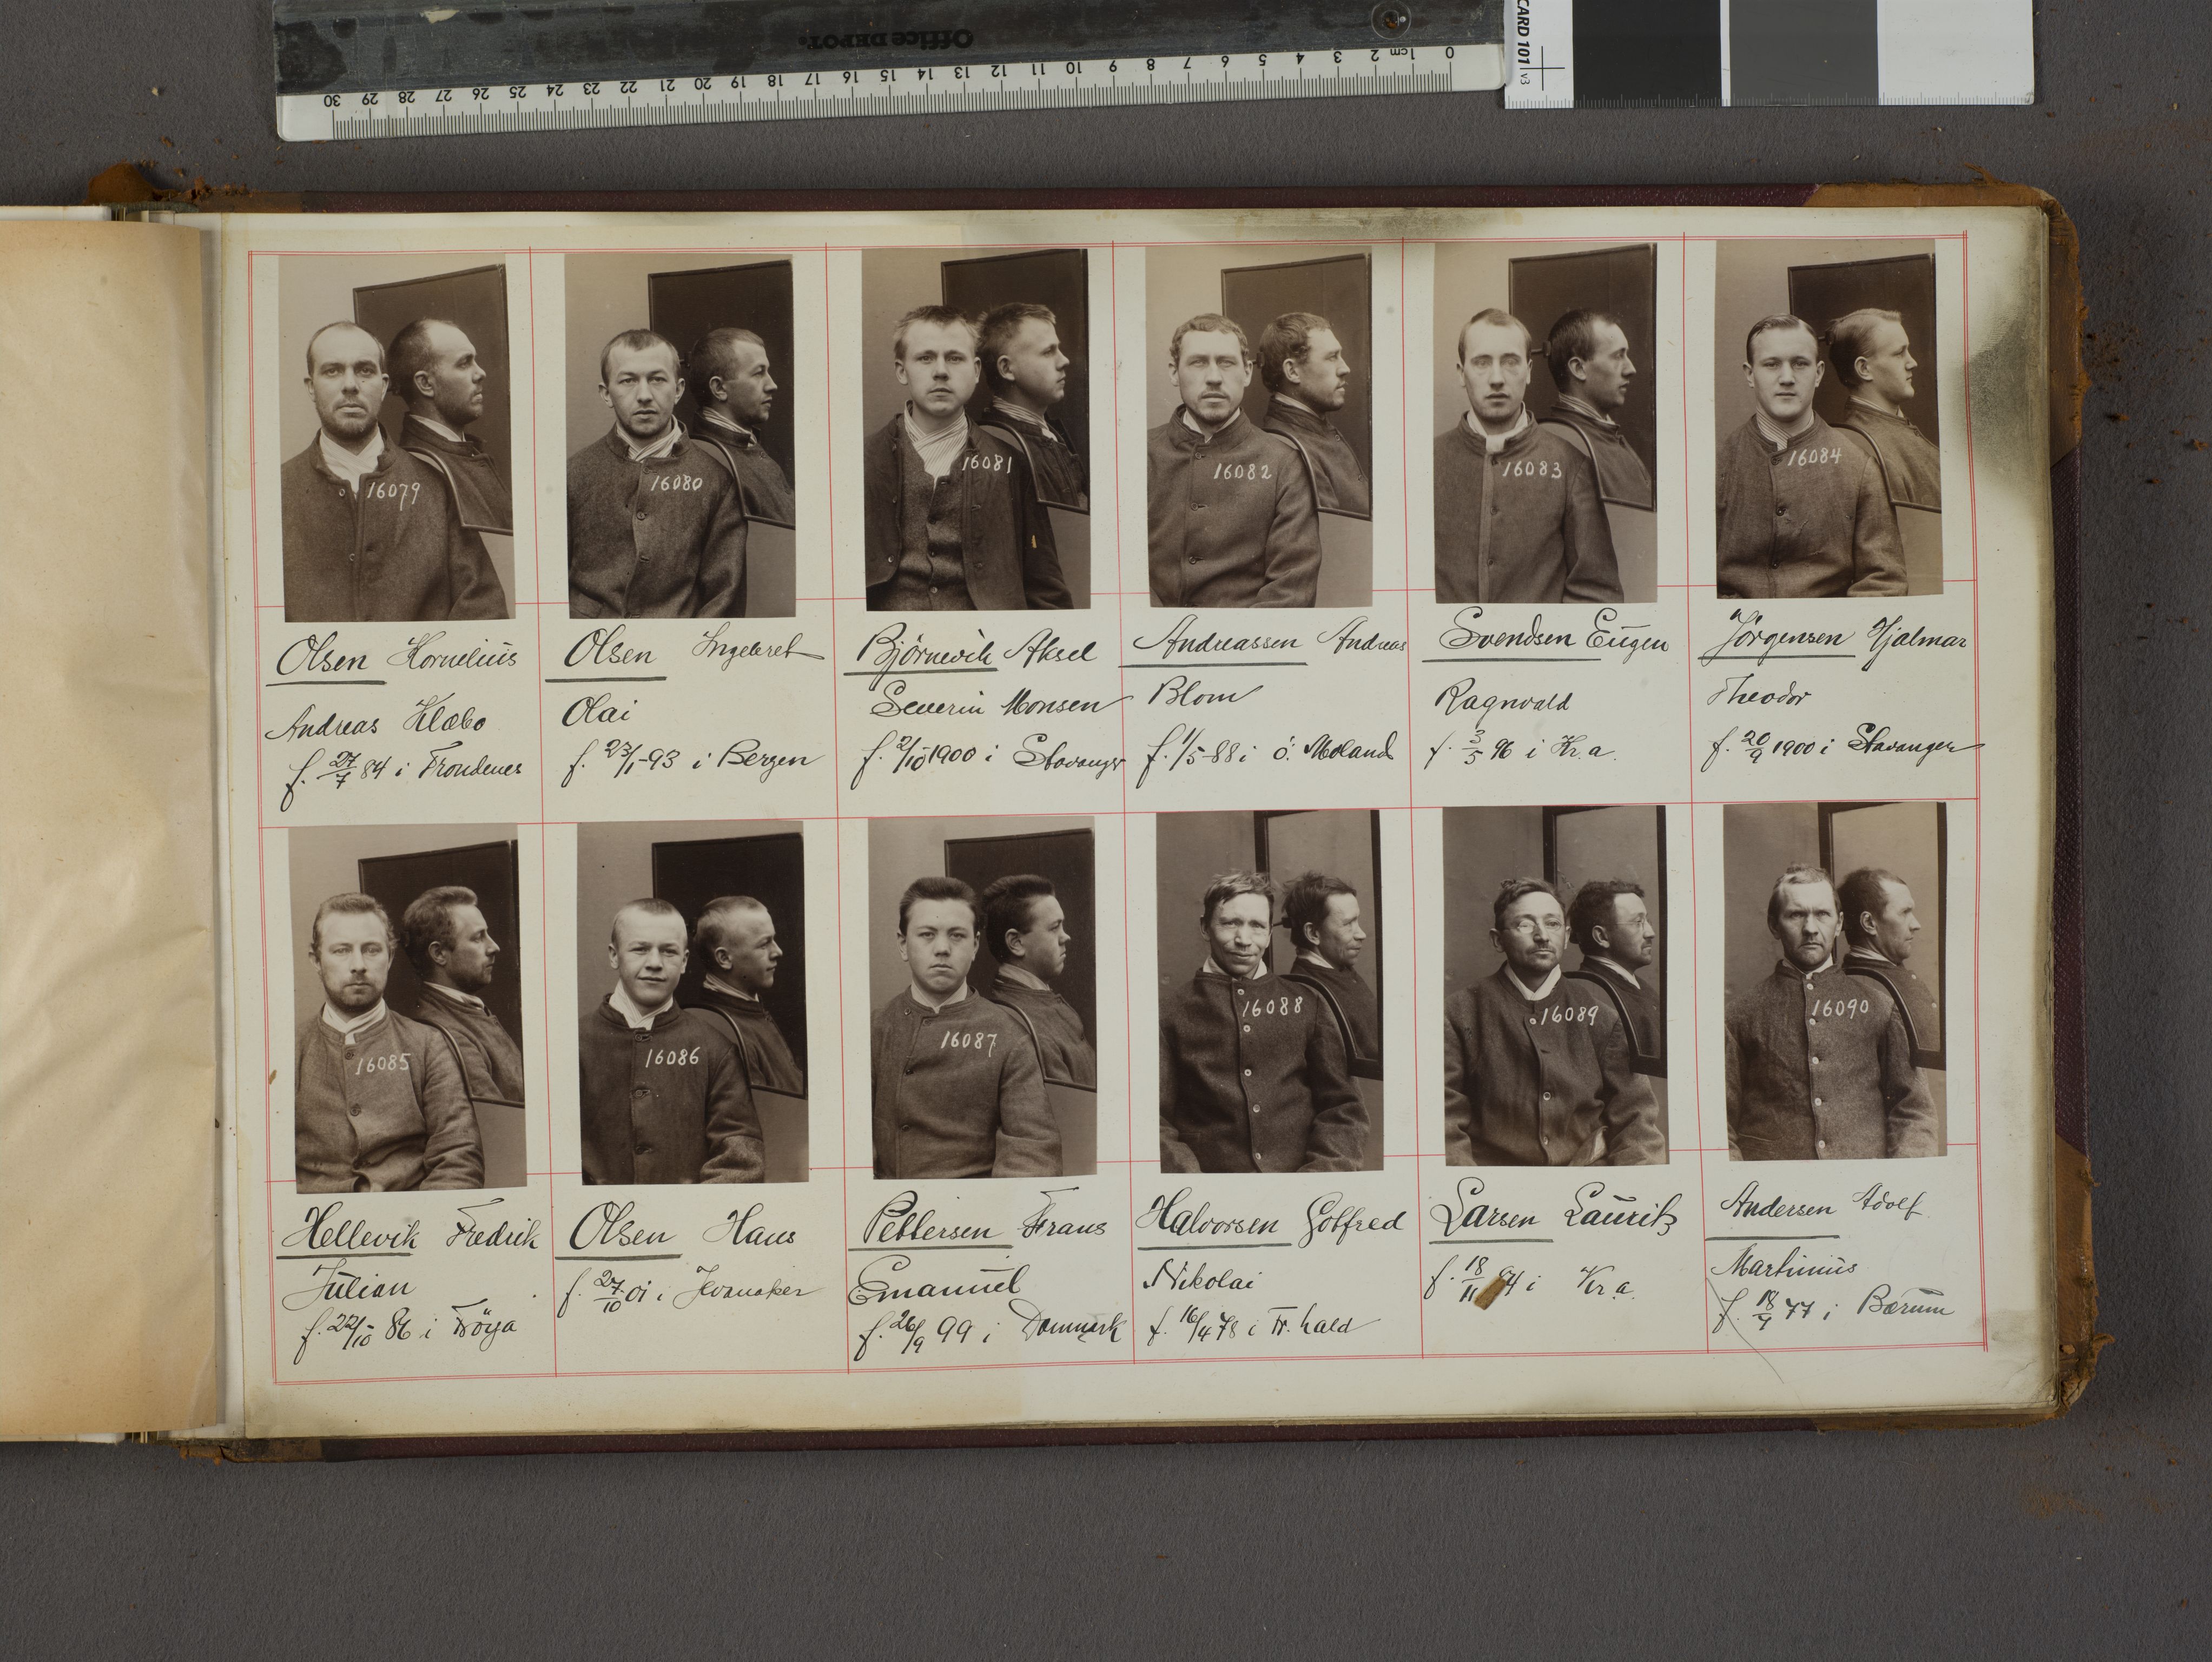 Office DEPOT.
0 1cm 2 3 4 5 6 7 8 9 10 11 12 13 14 15 16 17 18 19 20 21 22 23 24 25 26 27 28 29 30
CARD 101 v3
16079
16080
16081
16082
16083
16084
Olsen Kornelius
Andreas Klæbo
f. 27/7 84 i Trondenes
Olsen Ingebret
Olai
f. 23/1-93 i Bergen
Björnevik Aksel
Severin Monsen
f. 2/10-1900 i Stavanger
Andreassen Andreas
Blom
f. 1/5-88 i ö. Moland
Svendsen Eugen
Ragnvald
f. 3/5 96 i Kr.a.
Jörgensen Hjalmar
Theodor
f. 20/9 1900 i Stavanger
16085
16086
16087
16088
16089
16090
Hellevik Fredrik
Julian
f. 22/10- 86 i Fröya
Olsen Hans
f. 27/10 01 i Jevnaker
Pettersen Frans
Emanuel
f. 26/9 99 i Danmark
Halvorsen Gotfred
Nikolai
f. 16/4 78 i Fr. hald
Larsen Lauritz
f. 18/11 i Kr.a.
Andersen Adolf
Martinius
f. 77 i Bærum